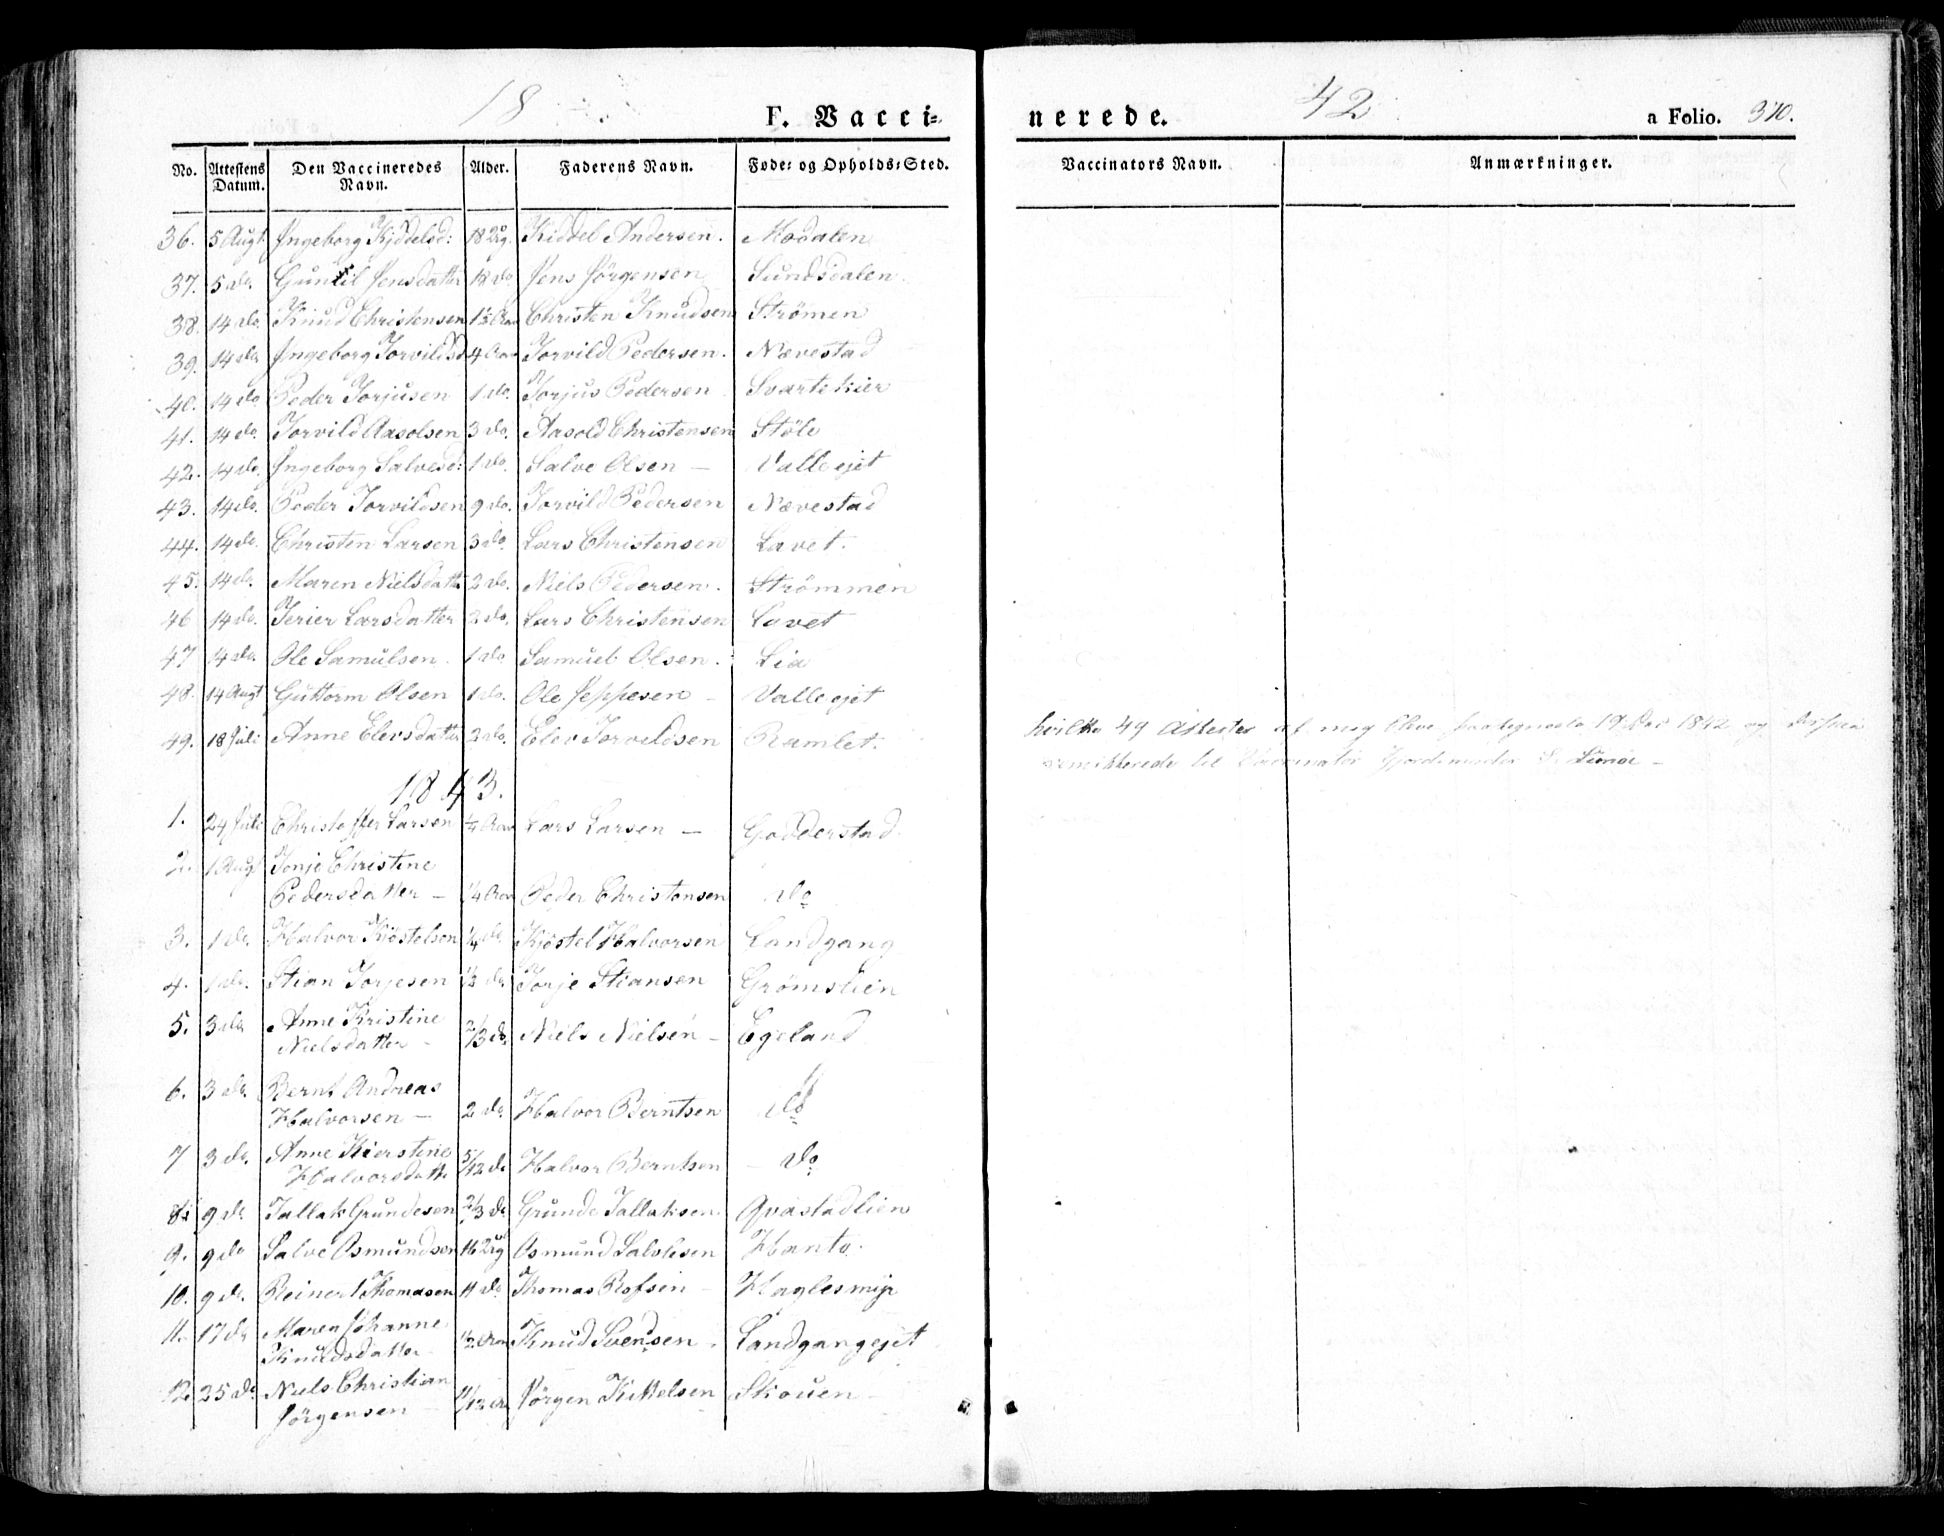 18 42
F. Vaccinerede. a Folio. 370.
No. Attestens Datum. Den Vaccineredes Navn. Alder. Faderens Navn. Føde- og Opholds-Sted. Vaccinators Navn. Anmærkninger.
36. 5 Augt Ingeborg Kjddelsd: 18 Ug. Kiddel Andersen. Modalen
37. 5 do. Gunnil Jensdatter 18 do Jens Jörgensen Sundsdalen.
38. 14 do. Knud Christensen 1½ Christen Knudsen Strömen
39. 14 do Ingeborg Torvildsd 4 Torvild Pedersen. Nævestad
40. 14 do Peder Torjusen 1 do. Torjus Pedersen Svartekier
41. 14 do. Torvild Aasolsen 3 do. Aasold Christensen Stöle
42. 14 do. Ingeborg Salvesd: 1 do. Salve Olsen — Valle ejet
43. 14 do. Peder Torvildsen 9 do. Torvild Pedersen Nævestad
44. 14 do. Christen Larsen 3 do. Lars Christensen Lavet.
45. 14 do. Maren Nielsdatt 2 do. Niels Pedersen. Strömmen
46 14 do. Terier Larsdatter 2 do. Lars Christensen Lavet
47 14 do. Ole Samulsen. 1 do Samuel Olsen. Lia
48. 14 Augt Guttorm Olsen 1 do. Ole Jeppesen — Valle ejet
49. 18 Juli Anne Elevsdatter 2 do. Elev Torvildsen Ramlet.
hvilke 49 Attester af mig 19 1842 og
til Vaccinator
1843.
1. 24 Juli Christoffer Larsen ¼ Lars Larsen — Godderstad.
2. 1 Augt Tonje Christine
Pedersdatter — ¼ Peder Christensen do
3. 1 do. Halvor Kjöstelsen ¼ do Kjöstel Halvorsen Landgang
4. 1 do. Stian Torjesen ½ do. Torje Stiansen Grömslien
5. 3 do Anne Kristine
Nielsdatter — 2/3 do. Niels Nielsen — Egeland
6. 3 do. Bernt Andreas
Halvorsen — 2 do Halvor Berntsen do
7 3 do. Anne Kierstine
Halvorsdatt 5/12 do Halvor Berntsen — do
8. 9 do Tallak Grundesen 2/3 do Grunde Tallaksen. Qvastadlien
9. 9 do Salve Osmundsen 16 Ug Osmund Salvesen Hanto.
10. 9 do. Reinert Thomasen 11 do Thomas Rofsen — Haglesmyr
11. 17 do Maren Johanne
Knudsdatter ½ Knud Svendsen. Landgangejet
12. 25 do Niels Christian
Jörgensen — 11/12 Jörgen Kittelsen Skouen —